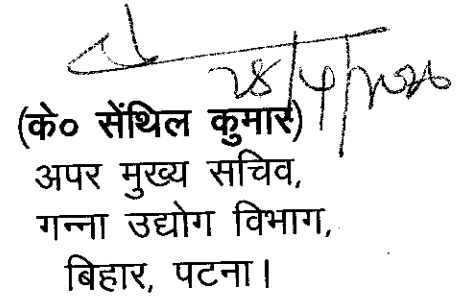 28/4/2026
(के० सेंथिल कुमार)
अपर मुख्य सचिव,
गन्ना उद्योग विभाग,
बिहार, पटना।